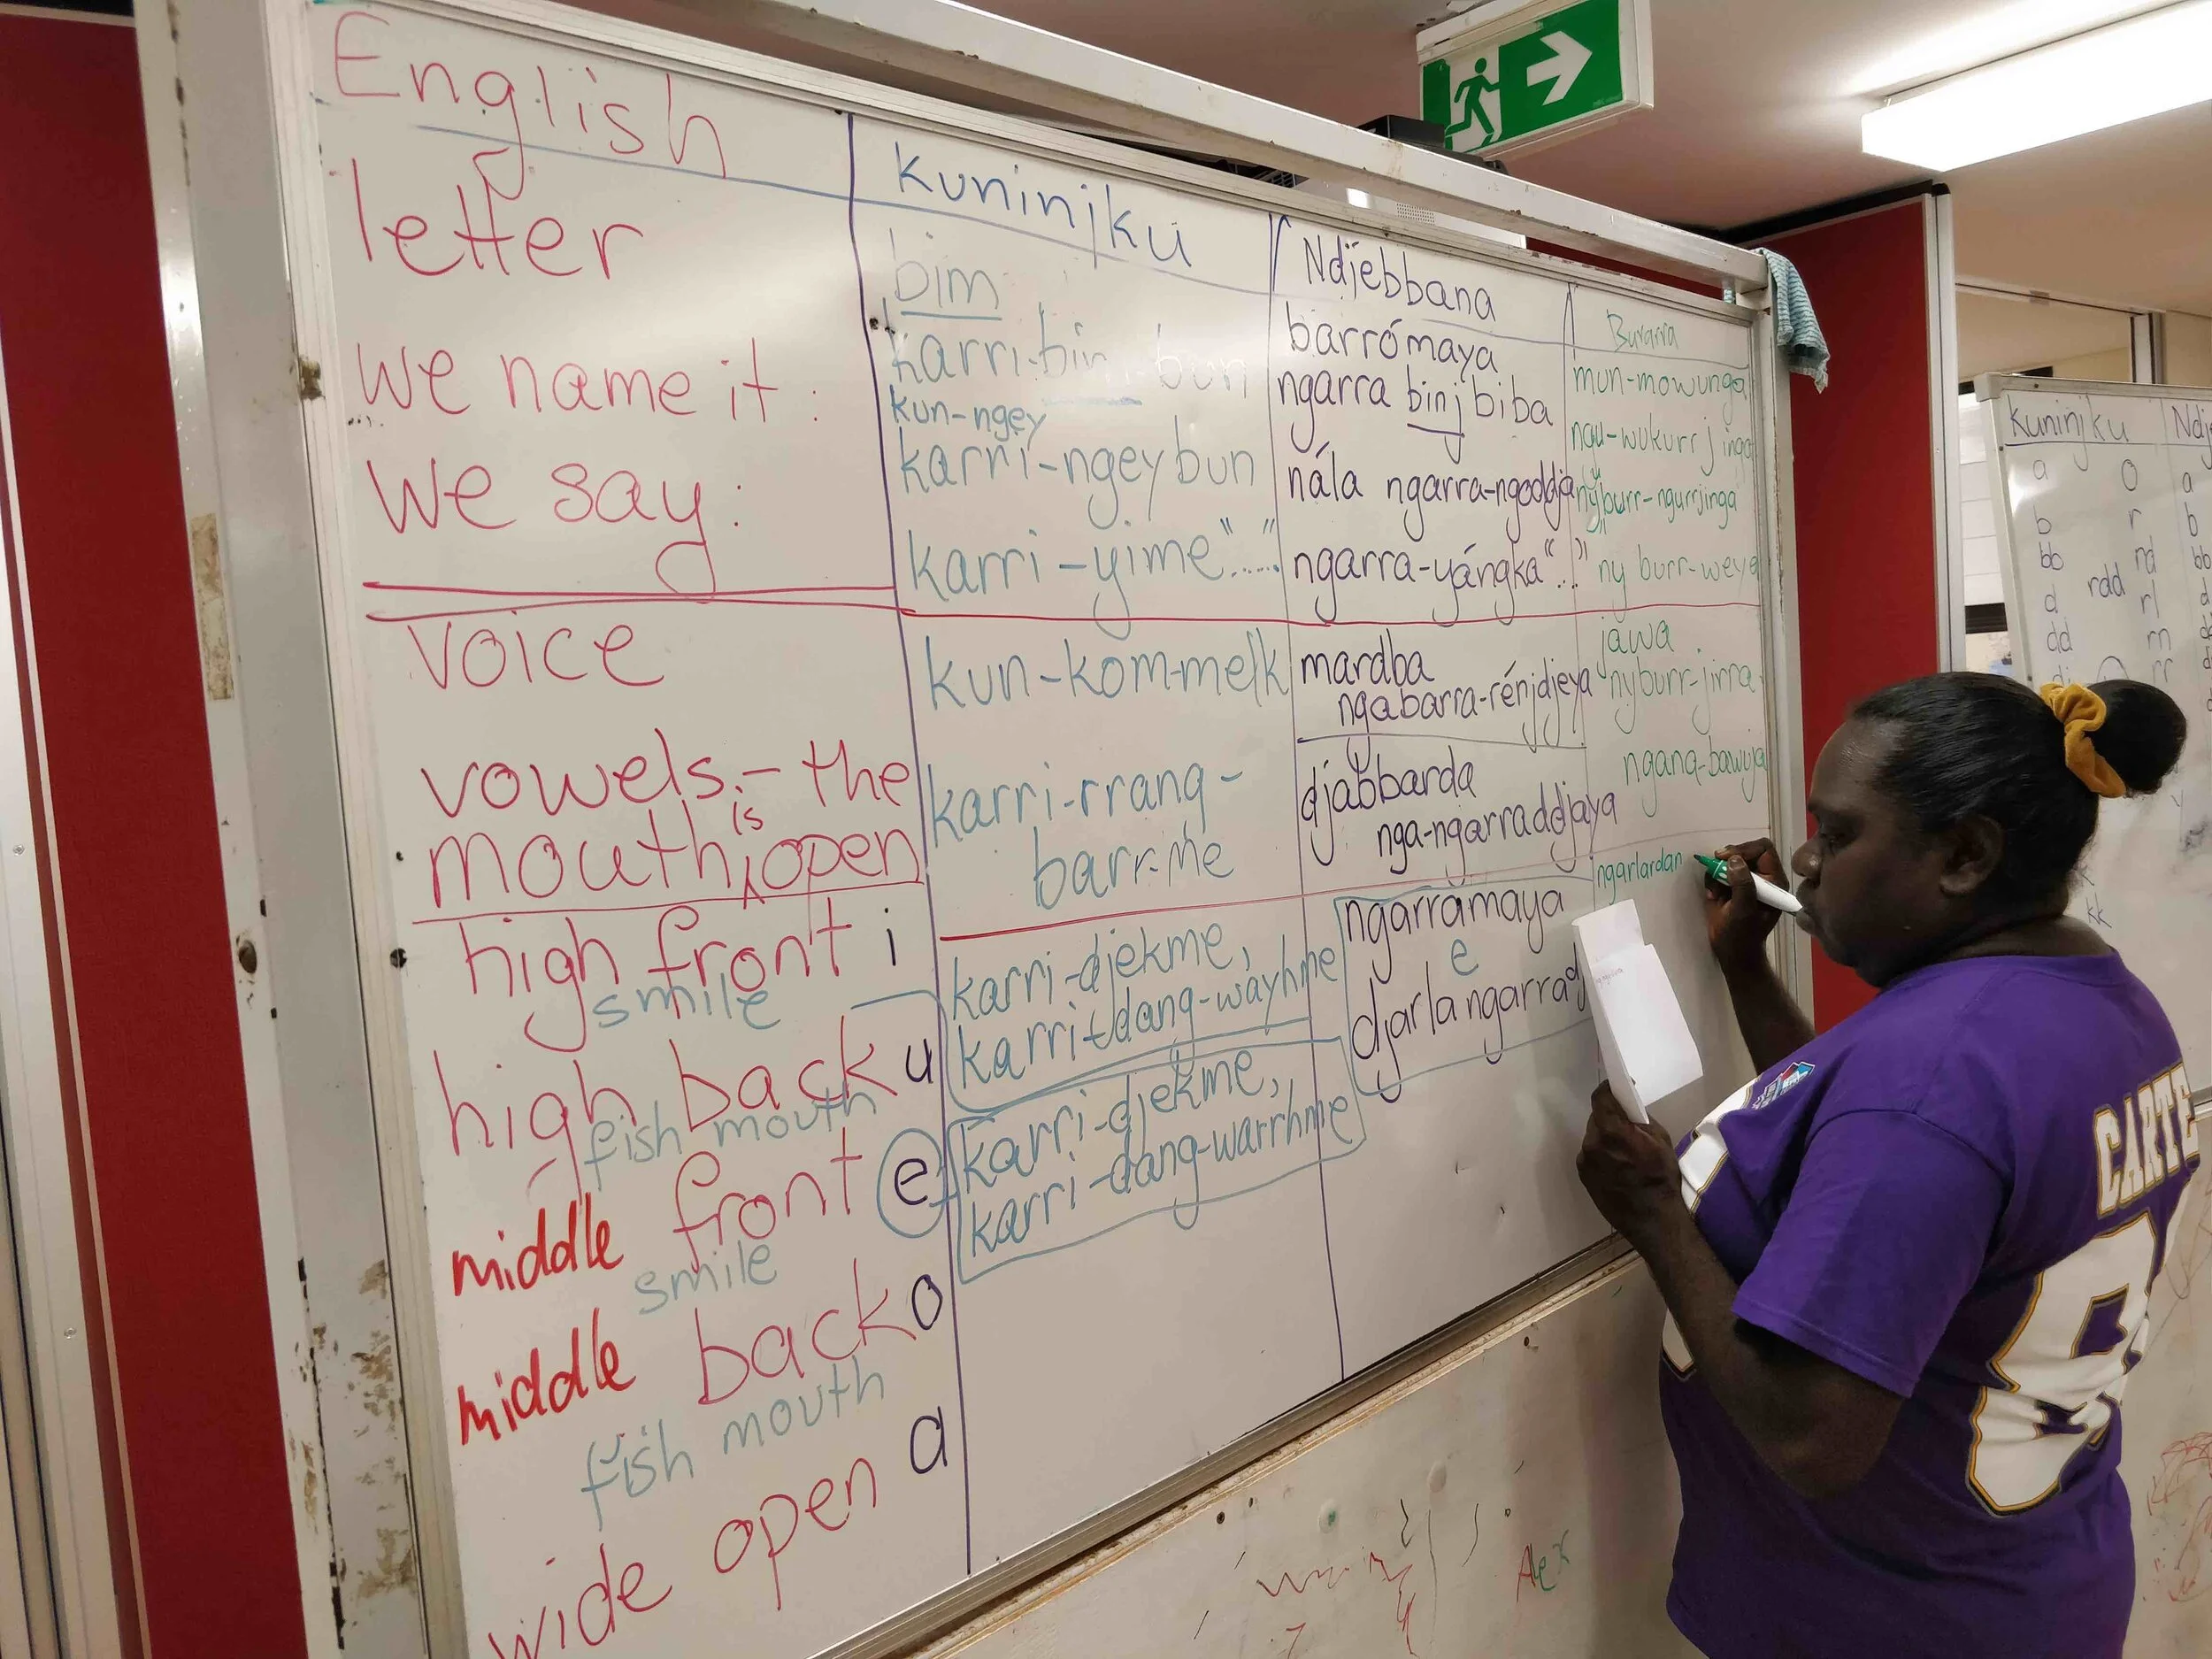 English
letter
we name it:
we say:
voice
vowels - the
mouth is open
high front i
smile
high back u
fish mouth
middle front e
smile
middle back o
fish mouth
wide open a
Kuninjku
bim
karri-bim-bun
kun-ngey
karri-ngeybun
karri-yime "....."
kun-kom-melk
karri-rrang-
barr-me
karri-djekme,
karri-dang-wayhme
karri-djekme,
karri-dang-warrhme
Ndjébbana
barrómaya
ngarra binjbiba
nála ngarra-ngoddja
ngarra-yángka "..."
mardba
ngabarra-rénjdjeya
djabbarda
nga-ngarraddjaya
ngarramaya
e
djarla ngarra
Burarra
mun-mowunga
ngu-wukurrjinga
nyburr-ngurrjinga
nyburr-weya
jawa
nyburr-jirra
ngana-bawuja
ngarlardan
Kuninjku
a
b
bb
d
dd
dj
o
r
rd
rdd
rl
rn
rr
Ndj
a
b
bb
d
k
kk
CARTE
Alex